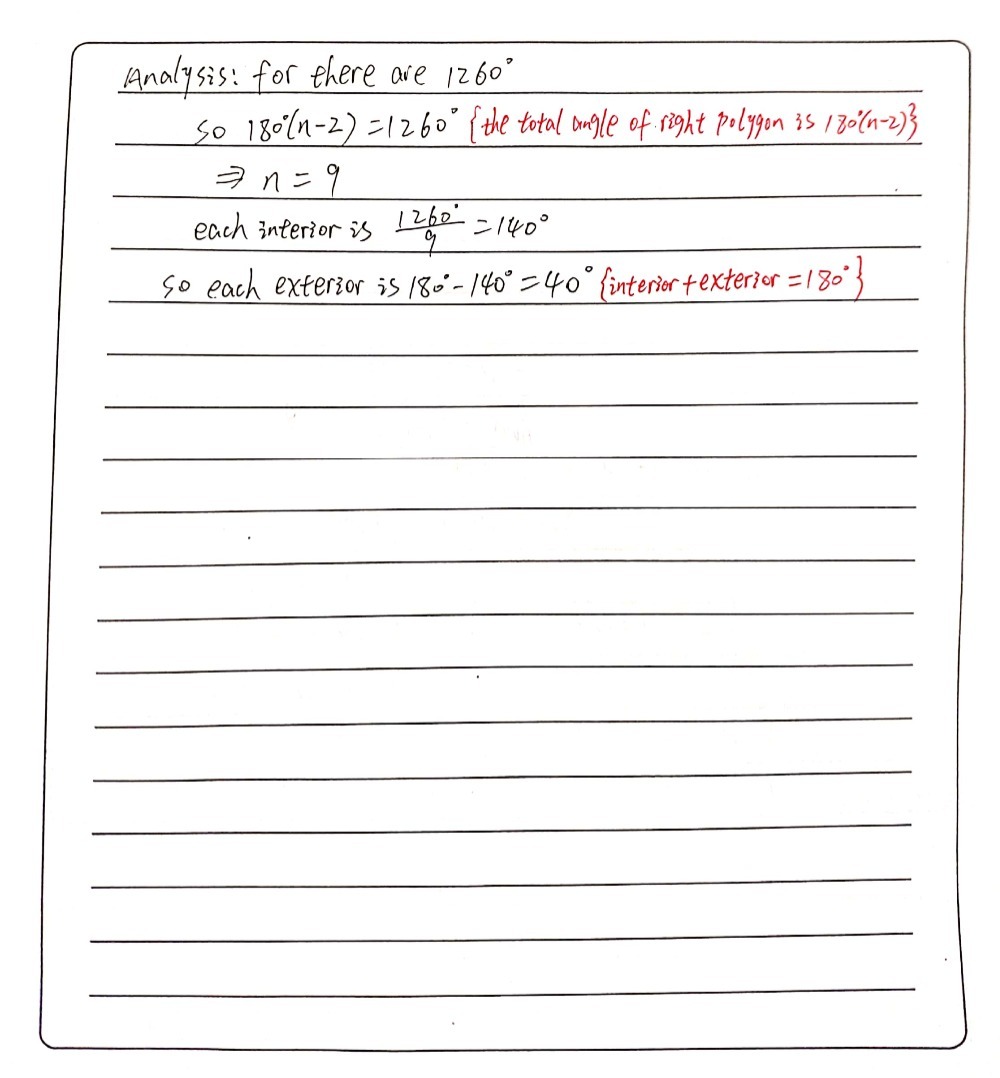 Analysis: for there are 1260°
so 180°(n-2)=1260° {the total angle of right polygon is 180°(n-2)}
⇒ n=9
each interior is \frac{1260°}{9}=140°
so each exterior is 180°-140°=40° {interior+exterior=180°}